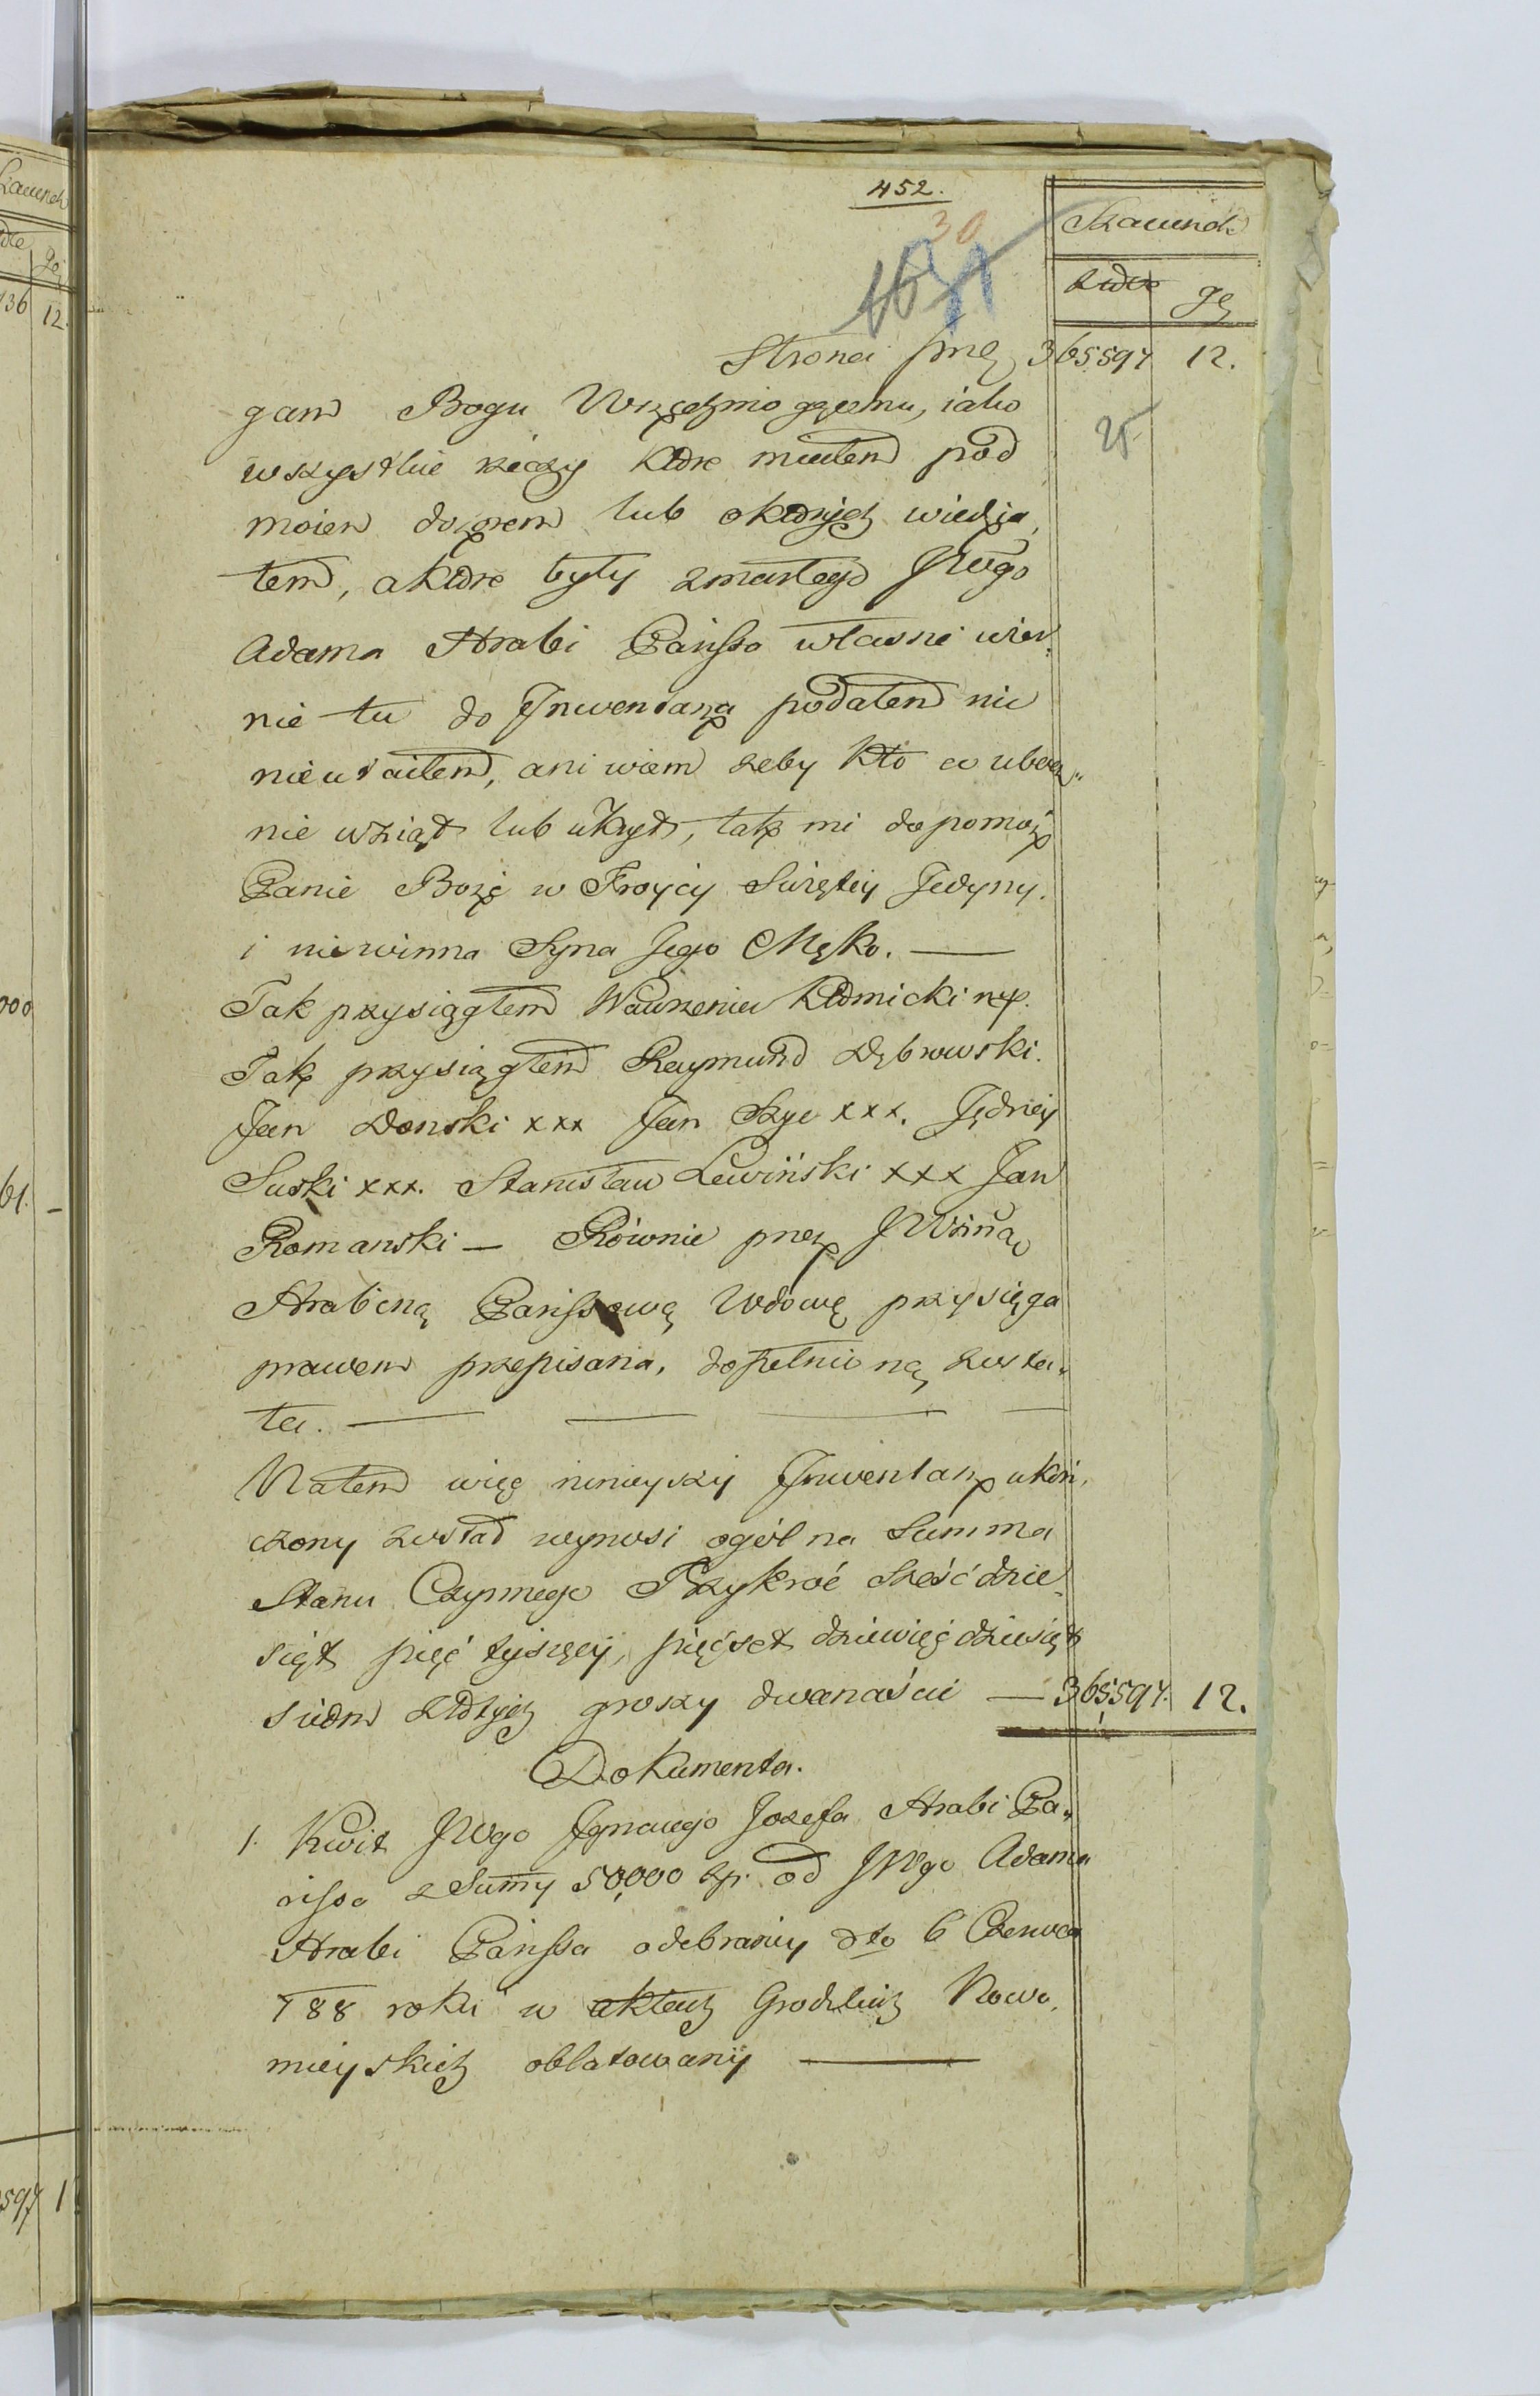 452.
30
Szacunek
Złotе gr
Strona prze 365,597 12.
gam Bogu Wszechmogącemu, iako
25
wszystkie rzeczy które miałem pod
moiem dozorem lub októrych wiedzia,
łem, aktóre były zmarłego JWgo
Adama Hrabi Parissa własne wier„
nie tu do Inwentarza podałem nic
nieutaiłem, ani wiem żeby kto co ubocz„
nie wziął lub ukrył, tak mi dopomoż
Panie Boże w Troycy Swiętey Jedyny.
i niewinna Syna Jego Męko. —
Tak przysiągłem Wawrzeniec Kłomicki mp.
Tak przysiągłem Raymund Dębrowski.
Jan Donski xxx Jan Szyc xxx. Jędrzey
Suski xxx. Stanisław Lewiński xxx Jan
Romanski — Równie przez JWżną
Hrabiną Parissową Wdowę przysięga
prawem przepisana, dopełnioną zosta„
ła. — — — —
Natem więc ninieyszy Inwentarz ukoń,
czony został wynosi ogólna Summa
Stanu Czynnego Trzykroć sześćdzie„
siąt pięć tysięcy, pięćset dziewięćdziesiąt
siedm złotych groszy dwanaście — 365,597. 12.
Dokumenta.
1. Kwit JWgo Ignacego Jozefa Hrabi Pa„
rissa z Summy 50,000 zp. od JWgo Adama
Hrabi Parissa odebraney dto 6 Czerwca
788 roku w aktach Grodzkich Nowo„
mieyskich oblatowany —